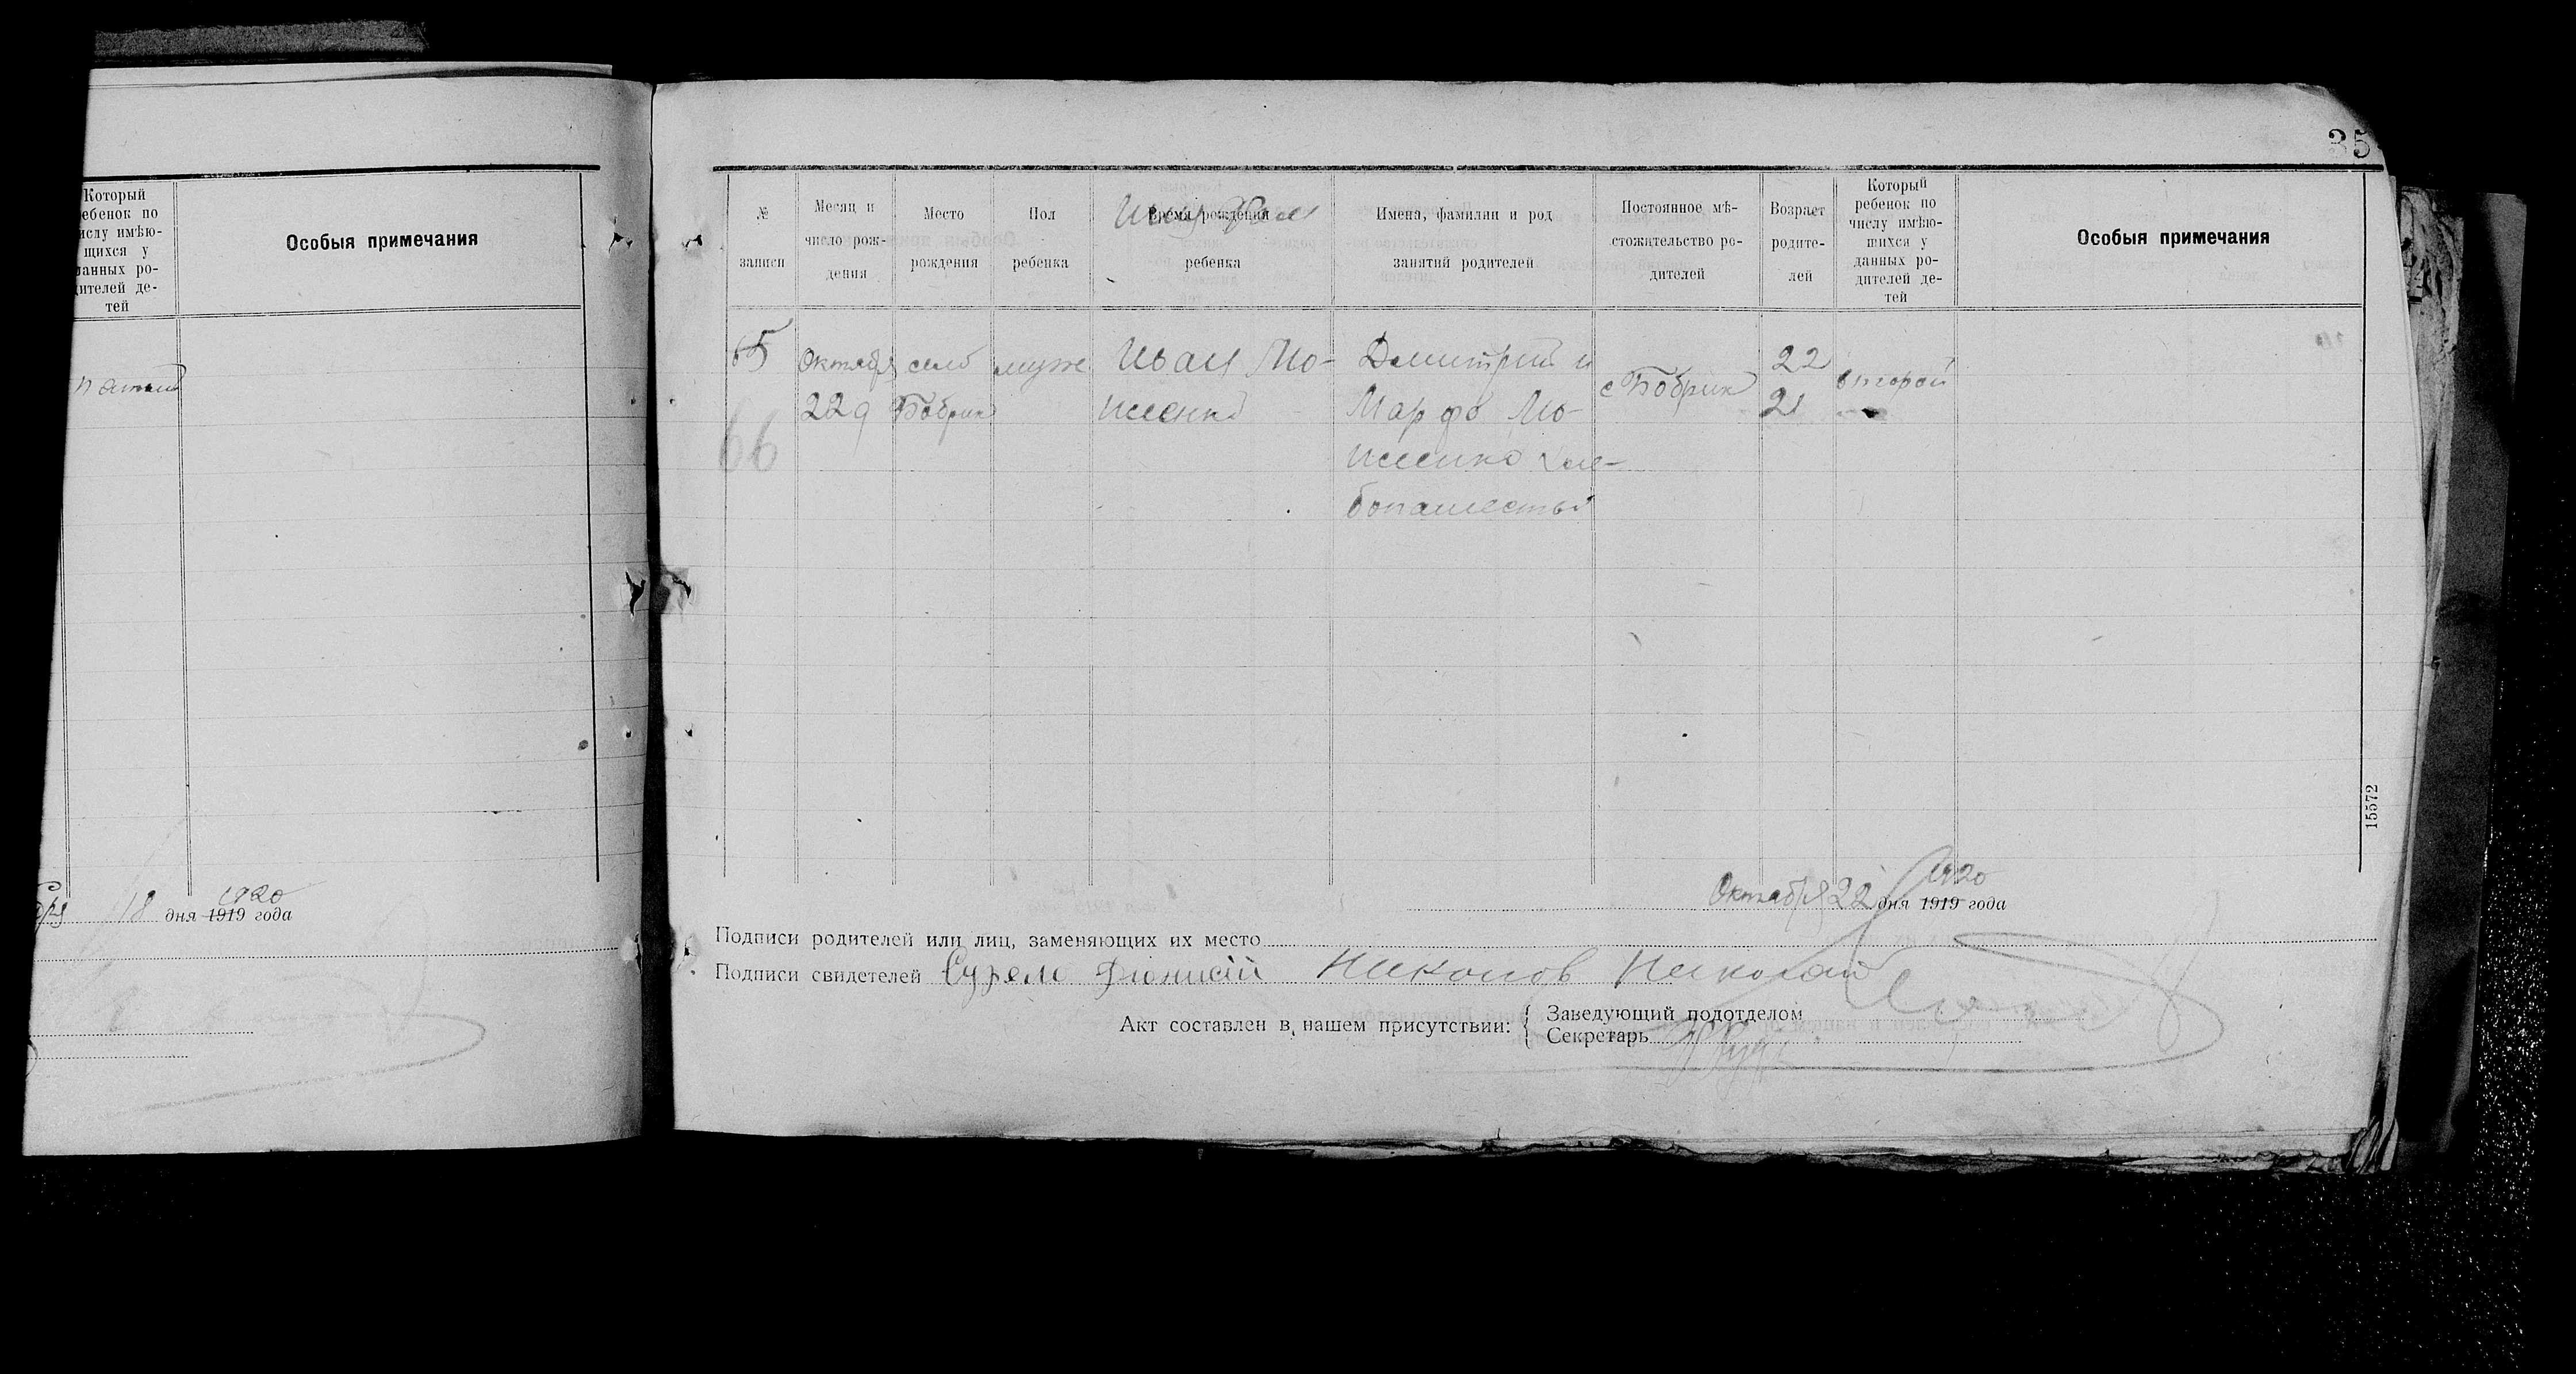 Который
ебенок по
ислу имѣю-
щихся у
данных ро-
дителей де-
тей
Особыя примечания
пятый
18 дня 1919 года
1920
35
№
записи
Месяц и
число рож-
дения
Место
рождения
Пол
ребенка
Время рождения
ребенка
Имена, фамилии и род
занятий родителей
Постоянное мѣ-
стожительство ро-
дителей
Возраст
родите-
лей
Который
ребенок по
числу имѣю-
щихся у
данных ро-
дителей де-
тей
Особыя примечания
65
66
Октября
22 д
село
Бобрик
муж
Иван
Дмитрий и
Марфа
с Бобрик
22
21
второй
15572
1920
Октября 22 дня 1919 года
Подписи родителей или лиц, заменяющих их место
Подписи свидетелей Николай
Акт составлен в нашем присутствии:
Заведующий подотделом
Секретарь